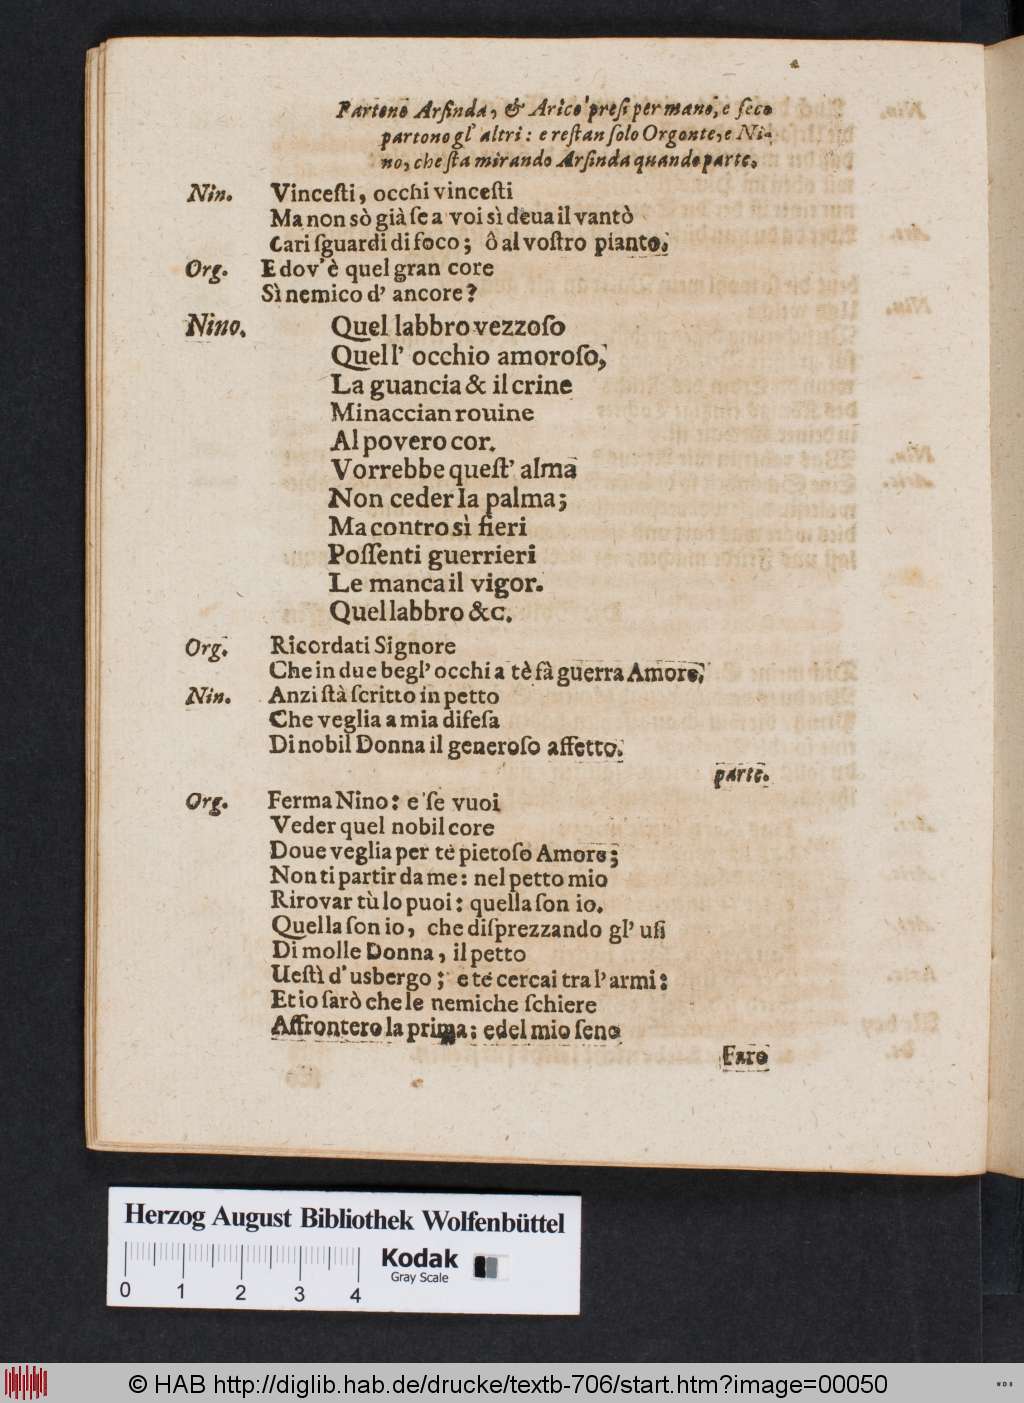 Partono Arſinda, & Arico preſi per mano, e ſeco
partono gl' altri: e reſtan ſolo Orgonte, e Ni-
no, che ſta mirando Arſinda quando parte.
Nin. Vinceſti, occhi vinceſti
Ma non sò già ſe a voi sì deua il vantò
Cari ſguardi di foco; ô al voſtro pianto.
Org. E dov'è quel gran core
Sì nemico d' ancore?
Nino. Quel labbro vezzoſo
Quell' occhio amoroſo,
La guancia & il crine
Minaccian rouine
Al povero cor.
Vorrebbe queſt' alma
Non ceder la palma;
Ma contro sì fieri
Poſſenti guerrieri
Le manca il vigor.
Quel labbro &c.
Org. Ricordati Signore
Che in due begl' occhi a tè fà guerra Amore.
Nin. Anzi ſtà ſcritto in petto
Che veglia a mia difeſa
Di nobil Donna il generoſo affetto.
parte.
Org. Ferma Nino: e ſe vuoi
Veder quel nobil core
Doue veglia per tè pietoſo Amore;
Non ti partir da me: nel petto mio
Rirovar tù lo puoi: quella ſon io.
Quella ſon io, che diſprezzando gl' uſi
Di molle Donna, il petto
Ueſtì d' usbergo; e te cercai tra l' armi:
Et io ſarò che le nemiche ſchiere
Affrontero la prima; e del mio ſeno
Faro
Herzog August Bibliothek Wolfenbüttel
Kodak
Gray Scale
0 1 2 3 4
© HAB http://diglib.hab.de/drucke/textb-706/start.htm?image=00050